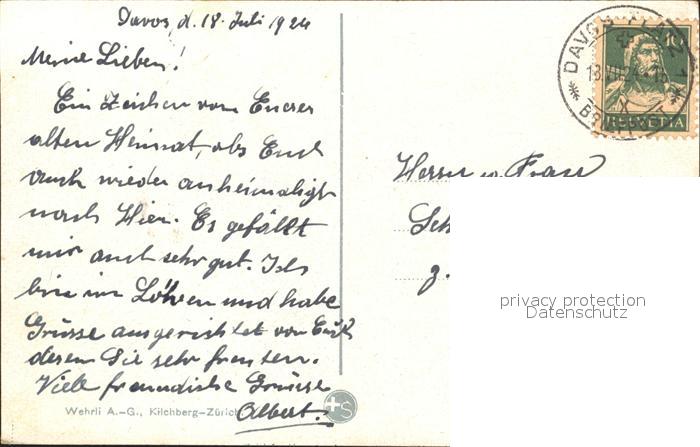 Davos, d. 18. Juli 1924
Meine Lieben!
Ein Zeichen vom Eurer
alten Heimat, obs Euch
auch wieder anheimaligt
nach Hier. Es gefällt
mir auch sehr gut. Ich
bin im Löhren und habe
Grüsse ausgerichtet von Euch
deren Sie sehr freuten.
Viele freundliche Grüsse
Albert.
Wehrli A.-G., Kilchberg-Zürich
+S
DAVOS PLATZ 1
18.VII.24
BRIEF
10
HELVETIA
Herrn u. Frau
Sch
z.
privacy protection
Datenschutz